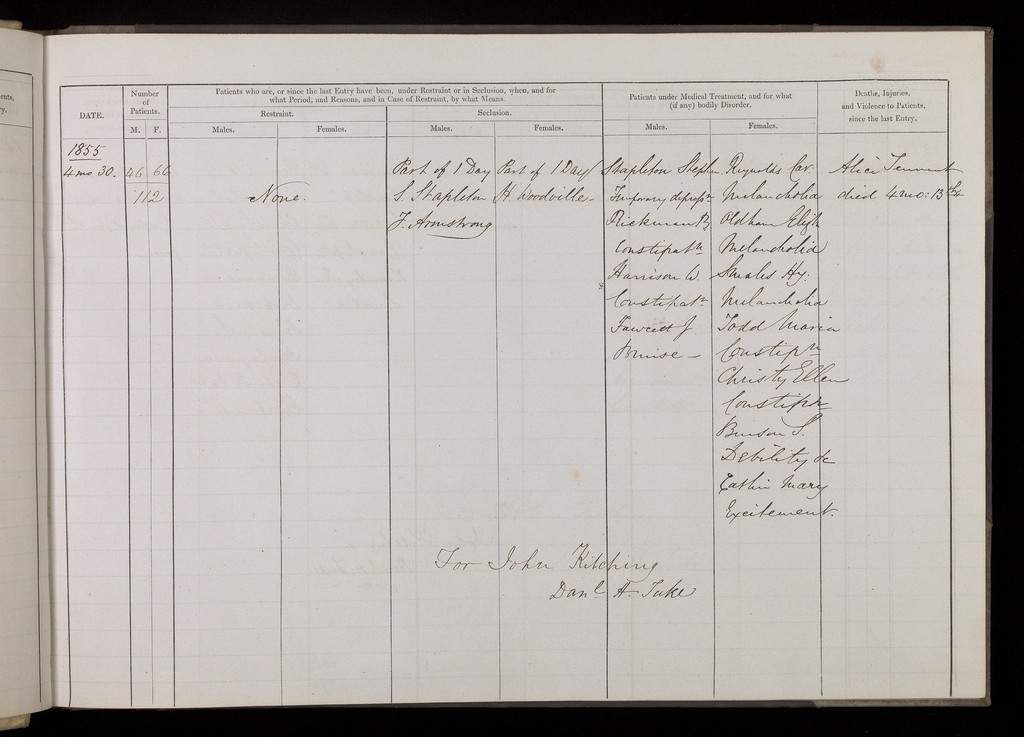 ents,
ry.
DATE.
Number
of
Patients.
M. F.
Patients who are, or since the last Entry have been, under Restraint or in Seclusion, when, and for
what Period, and Reasons, and in Case of Restraint, by what Means.
Restraint.
Seclusion.
Males.
Females.
Males.
Females.
Patients under Medical Treatment, and for what
(if any) bodily Disorder.
Males.
Females.
Deaths, Injuries,
and Violence to Patients,
since the last Entry.
1855
4 mo 30. 46 66
112
None.
Part of 1 Day
S. Stapleton
J. Armstrong
Part of 1 Day
H. Woodville
Stapleton Stephn
Temporary depressn
Rickman
Constipatn
Harrison W.
Constipatn
Fawcett J.
Bruise
Reynolds Car.
Melancholia
Oldham Elizh
Melancholia
Smales Hy.
Melancholia
Todd Maria
Constipn
Christy Ellen
Constipn
Benson S.
Debility &c
Mary
Excitement.
Alice
died 4 mo: 13th
For John Kitching
Danl H. Tuke